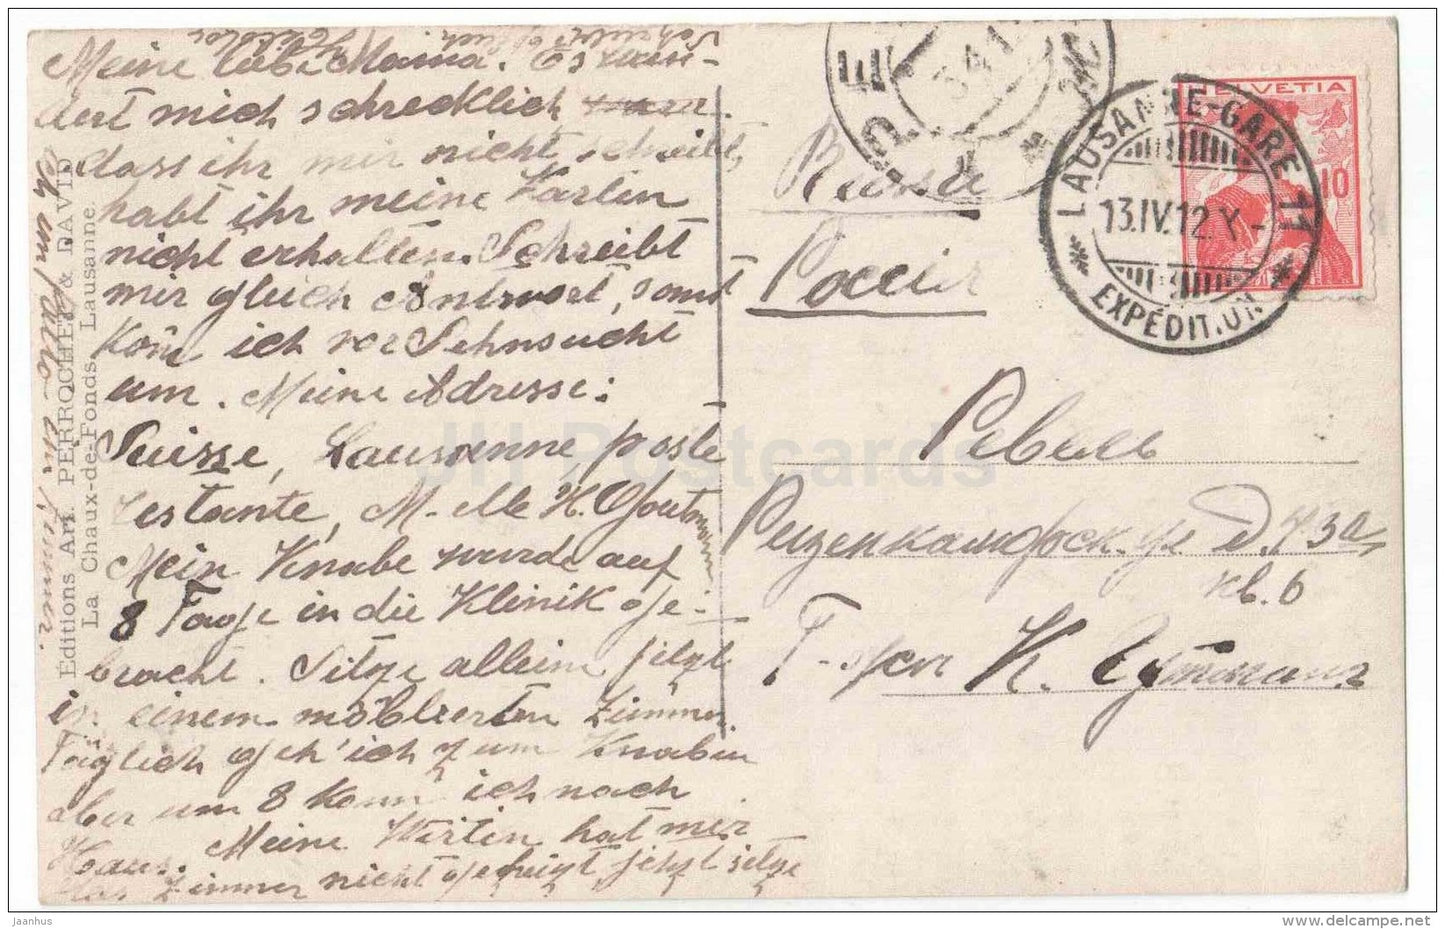 Meine liebe Mama. Es wun-
dert mich schrecklich
dass ihr mir nicht schreibt,
habt ihr meine Karten
nicht erhalten. Schreibt
mir gleich Antwort, sonst
kom ich vor Sehnsucht
um. Meine Adresse:
Suisse, Lausanne, poste
restante, M-elle H. Goutmann
Mein Knabe wurde auf
8 Tage in die Klinik ge-
bracht. Sitze allein jetzt
in einem möblierten Zimmer.
Täglich geh' ich zum Knaben
aber um 8 komm ich nach
Haus. Meine Wirtin hat mir
das Zimmer nicht geheizt jetzt sitze
ich un
Schreibt gleich
Éditions Art. PERROCHET & DAVID
La Chaux-de-Fonds, Lausanne.
Россія
Ревель
Рызенкампфск. ул. д. 73a,
кв. 6
Г-жеи К. Гутманъ
HELVETIA
10
LAUSANNE-GARE 11
13.IV.12.X-
EXPÉDIT.ON
JH Postcards
jaanhus
http://www.delcampe.net